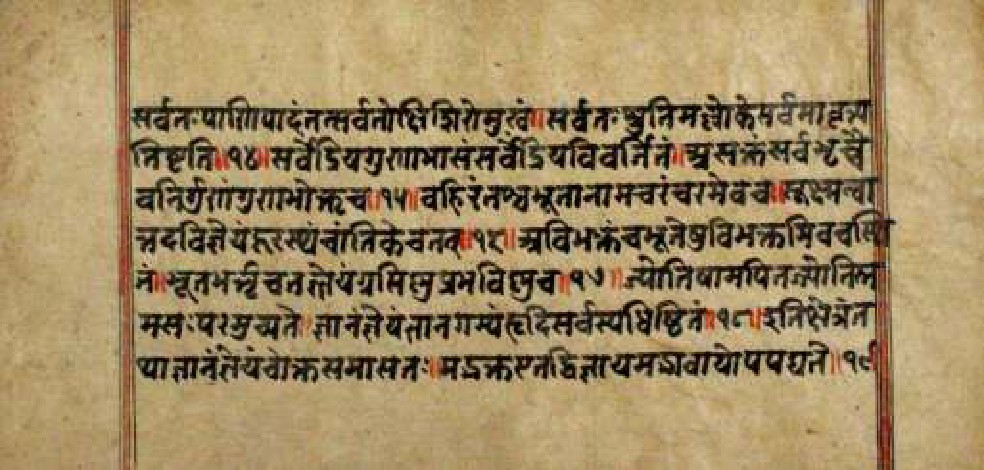 सर्वतःपाणिपादंतत्सर्वतोक्षिशिरोमुखं॥सर्वतःश्रुतिमल्लोकेसर्वमावृत्य
तिष्टति॥१४॥सर्वेंद्रियगुणाभासंसर्वेंद्रियविवर्जितं॥असक्तंसर्वभृच्चै
वनिर्गुणंगुणभोक्तृच॥१५॥वहिरंतश्चभूतानामचरंचरमेवच॥सूक्ष्मत्वा
त्तदविज्ञेयंदूरस्थंचांतिकेचतत्॥१६॥अविभक्तंचभूतेषुविभक्तमिवचस्थि
तं॥भूतभर्तृचतज्ज्ञेयंग्रसिष्णुप्रभविष्णुच॥१७॥ज्योतिषामपितज्योतिस्त
मसःपरमुच्यते॥ज्ञानंज्ञेयंज्ञानगम्यंहृदिसर्वस्यधिष्ठितं॥१८॥इतिक्षेत्रंत
थाज्ञानंज्ञेयंचोक्तंसमासतः॥मद्भक्तएतद्विज्ञायमद्भावायोपपद्यते॥१९